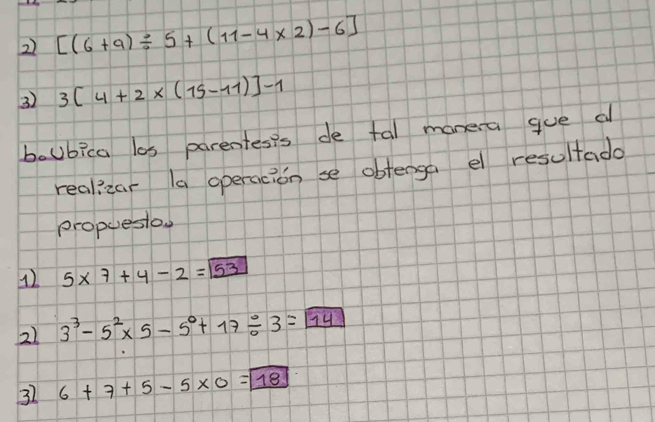 2) [(6+9) ÷ 5 + (11-4×2)-6]
3) 3[4+2×(15-11)]-1
b.Ubica los parentesis de tal manera que al
realizar la operación se obtenga el resultado
propuesto.
1) 5×7+4-2=53
2) 3³-5²×5-5⁰+17÷3=14
3) 6+7+5-5×0=18